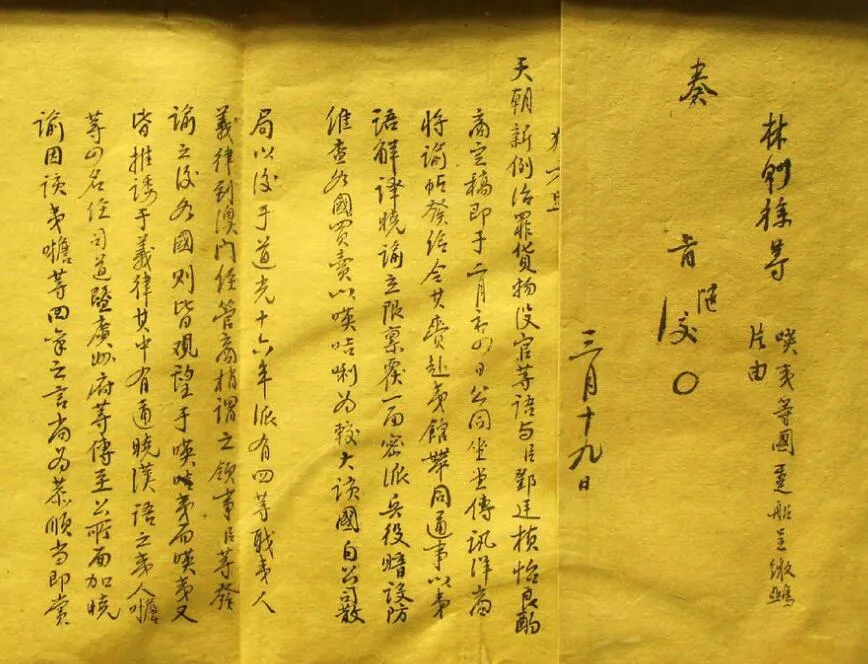 林則徐等
𠸄夷等國躉船呈繳鴉
片由
奏
旨
三月十九日
天朝新例治罪貨物没官等語与臣鄧廷楨怡良酌
商定稿即于二月初四日公同坐堂傳訊洋商
將諭帖發給令其賫赴夷館帶同通事以夷
語解譯曉諭立限稟覆一面密派兵役暗設防
維查各國買賣以𠸄咭唎為較大該國自公司散
局以後于道光十六年派有四等職夷人
義律到澳門經管商梢謂之領事臣等發
諭之後各國則皆觀望于𠸄咭夷而𠸄夷又
皆推諉于義律其中有通曉漢語之夷人噡
等四名經司道暨廣州府等傳至公所面加曉
諭因該夷噡等回稟之言尚為恭順當即賞